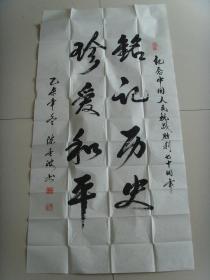 纪念中国人民抗战胜利七十周年
铭记历史
珍爱和平
乙未年冬